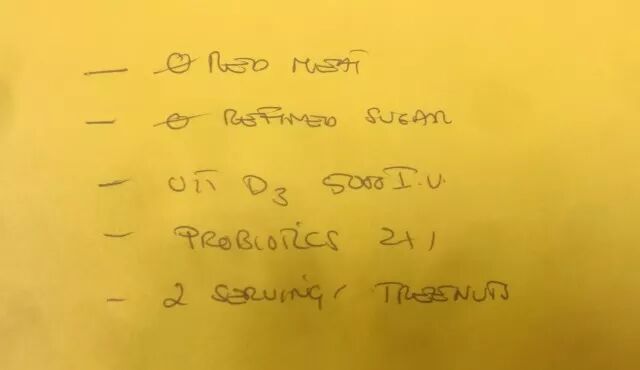 — Ø RED MEAT
— Ø REFINED SUGAR
— VIT D3 5000 I.U.
— PROBIOTICS 2x1
— 2 SERVING/ TREENUTS